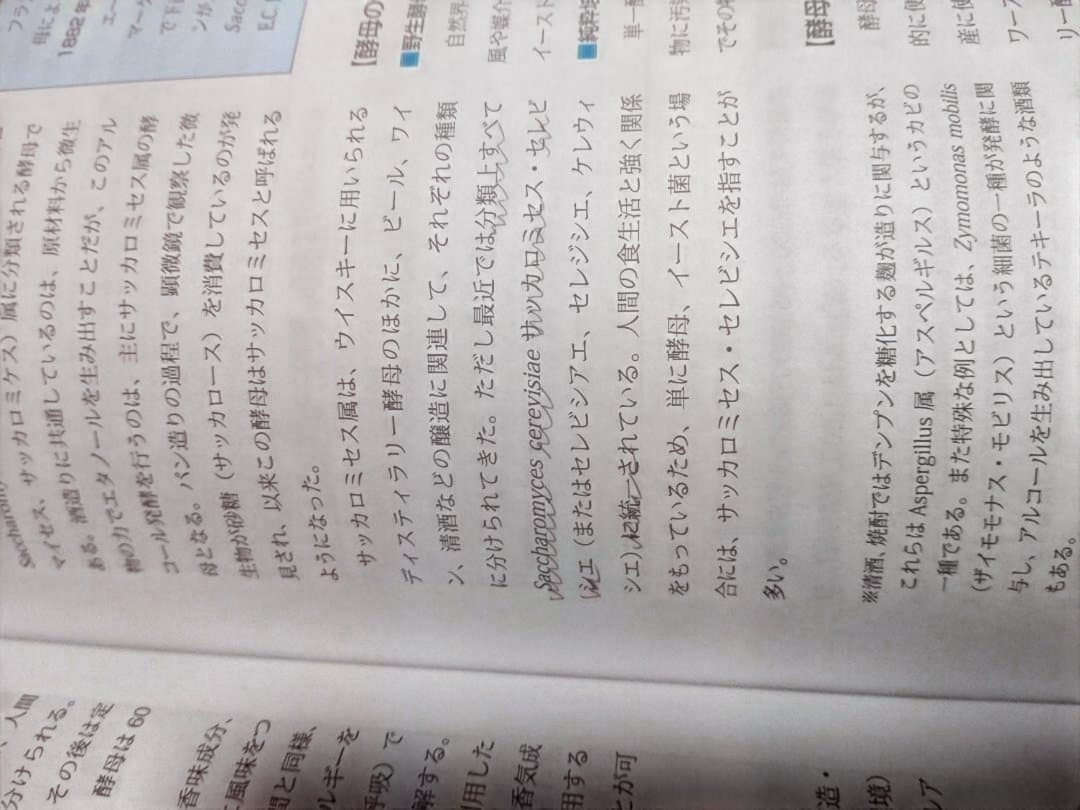 Saccharom
マイセス、サッカロミケス）属に分類される酵母で
ある。酒造りに共通しているのは、原材料から微生
物の力でエタノールを生み出すことだが、このアル
コール発酵を行うのは、主にサッカロミセス属の酵
母となる。パン造りの過程で、顕微鏡で観察した微
生物が砂糖（サッカロース）を消費しているのが発
見され、以来この酵母はサッカロミセスと呼ばれる
ようになった。
サッカロミセス属は、ウイスキーに用いられる
ディスティラリー酵母のほかに、ビール、ワイ
ン、清酒などの醸造に関連して、それぞれの種類
に分けられてきた。ただし最近では分類上すべて
Saccharomyces cerevisiae サッカロミセス・セレビ
シエ（またはセレビシアエ、セレジシエ、ケレウィ
シエ）に統一されている。人間の食生活と強く関係
をもっているため、単に酵母、イースト菌という場
合には、サッカロミセス・セレビシエを指すことが
多い。
※清酒、焼酎ではデンプンを糖化する麹が造りに関与するが、
これらは Aspergillus 属（アスペルギルス）というカビの
一種である。また特殊な例としては、Zymomonas mobilis
（ザイモモナス・モビリス）という細菌の一種が発酵に関
与し、アルコールを生み出しているテキーラのような酒類
もある。
フラン
1882年
エー
マーク
ンが
Sacc
E.C.
【酵母の
■野生酵
自然界
風や媒介
イースト
■純粋培
単一酵
物に汚
でその
【酵母
酵母
的に使
産に使
ワース
リー酵
、人間
分けられる。
その後は定
酵母は60
香味成分、
風味をつ
間と同様、
ルギーを
呼吸）で
解する。
利用した
香気成
用する
とが可
造・
境）
ア